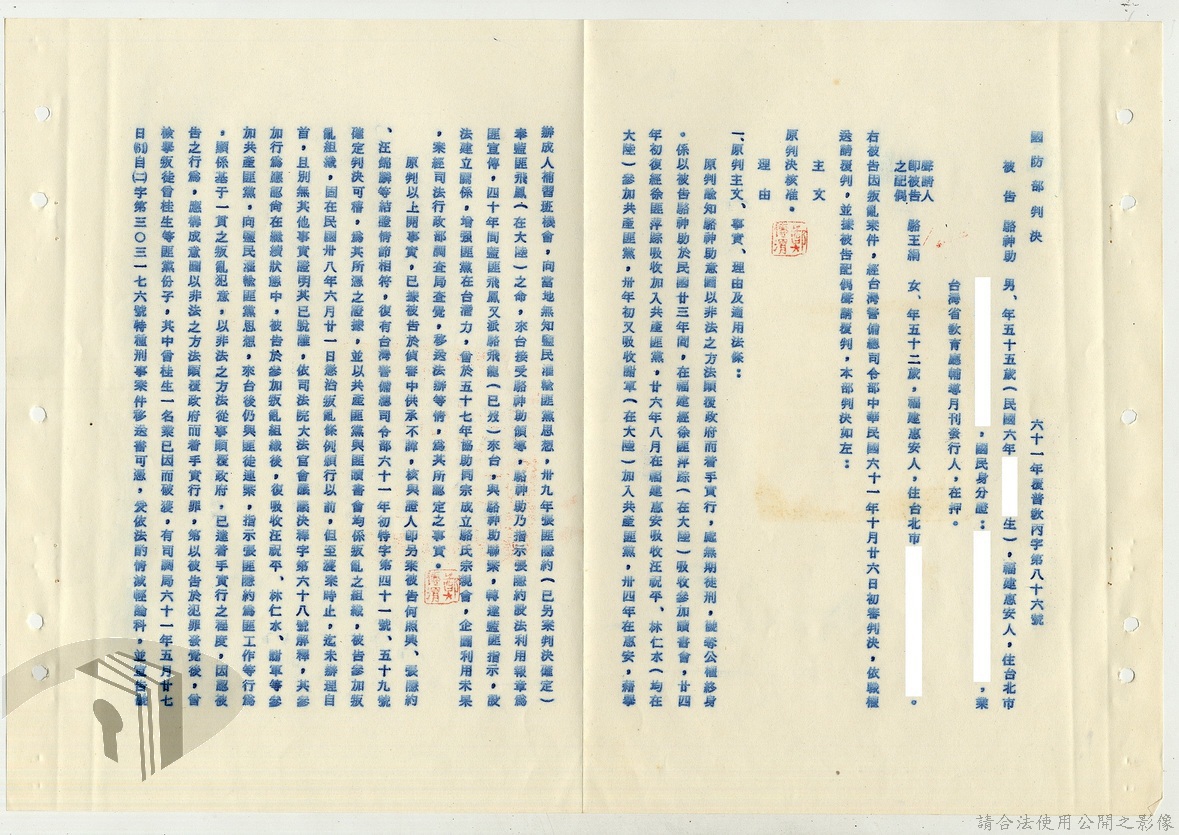 國防部判決
六十一年覆普敦丙字第八十六號
被告 駱神助 男、年五十五歲(民國六年 生)，福建惠安人，住台北市
，國民身分證： ，業
台灣省教育廳輔導月刊發行人，在押。
聲請人
即被告
之配偶
駱王絹 女、年五十二歲，福建惠安人，住台北市 。
右被告因叛亂案件，經台灣警備總司令部中華民國六十一年十月廿六日初審判決，依職權
送請覆判，並據被告配偶聲請覆判，本部判決如左：
主文
原判決核准。
理由
一、原判主文、事實、理由及適用法條：
原判諭知駱神助意圖以非法之方法顛覆政府而着手實行，處無期徒刑，褫奪公權終身
。係以被告駱神助於民國廿三年間，在福建經徐匪萍踪(在大陸)吸收參加讀書會，廿四
年初復經徐匪萍踪吸收加入共產匪黨，廿六年八月在福建惠安吸收汪祝平、林仁水(均在
大陸)參加共產匪黨，卅年初又吸收謝軍(在大陸)加入共產匪黨，卅四年在惠安，藉舉
辦成人補習班機會，向當地無知鹽民灌輸匪黨思想，卅九年張隱約(已另案判決確定)
奉藍匪飛鳳(在大陸)之命，來台接受駱神助領導，駱神助乃指示張隱約設法利用報章為
匪宣傳，四十年間藍匪飛鳳又派駱飛龍(已歿)來台，與駱神助聯絡，轉達藍匪指示，設
法建立關係，增強匪黨在台潛力，曾於五十七年協助同宗成立駱氏宗親會，企圖利用未果
，案經司法行政部調查局查覺，移送法辦等情，為其所認定之事實。
原判以上開事實，已據被告於偵審中供承不諱，核與證人即另案被告何照與、張隱約
、汪錦麟等結證情節相符，復有台灣警備總司令部六十一年初特字第四十一號、五十九號
確定判決可稽，為其所憑之證據，並以共產匪黨與匪讀書會均係叛亂之組織，被告參加叛
亂組織，固在民國卅八年六月廿一日懲治叛亂條例頒行以前，但至發案時止，迄未辦理自
首，且別無其他事實證明其已脫離，依司法院大法官會議議決釋字第六十八號解釋，其參
加行為應認尚在繼續狀態中，被告於參加叛亂組織後，復吸收汪祝平、林仁水、謝軍等參
加共產匪黨，向鹽民灌輸匪黨思想，來台後仍與匪徒連絡，指示張隱約為匪工作等行為
，顯係基于一貫之叛亂犯意，以非法之方法從事顛覆政府，已達着手實行之程度，因認被
告之行為，應構成意圖以非法之方法顛覆政府而着手實行罪，第以被告於犯罪發覺後，曾
檢舉叛徒曾桂生等匪黨份子，其中曾桂生一名業已因而破獲，有司調局六十一年五月廿七
日(61)自(二)字第三〇三一七六號特種刑事案件移送書可憑，爰依法酌情減輕論科，並宣告褫
請合法使用公開之影像